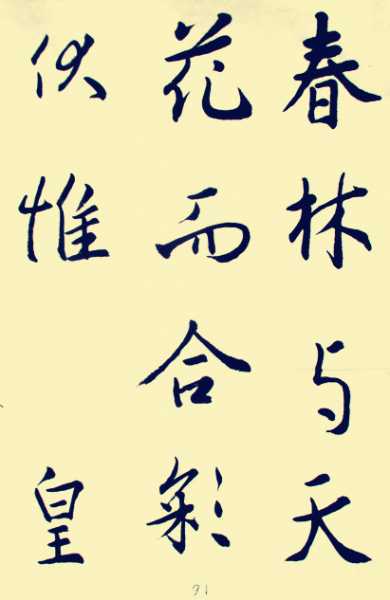 春林与天
花而合彩
伏惟 皇